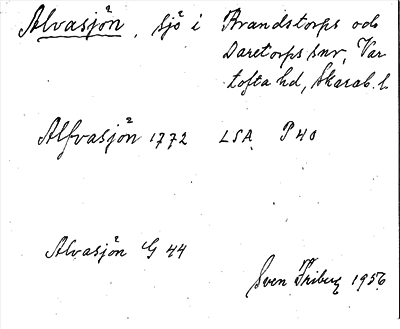 Alvasjön, sjö i Brandstorps och
Daretorps snr, Var
tofta hd, Skarab. l.
Alfvasjön 1772 LSA P 40
Alvasjön G 44
Sven Friberg 1956